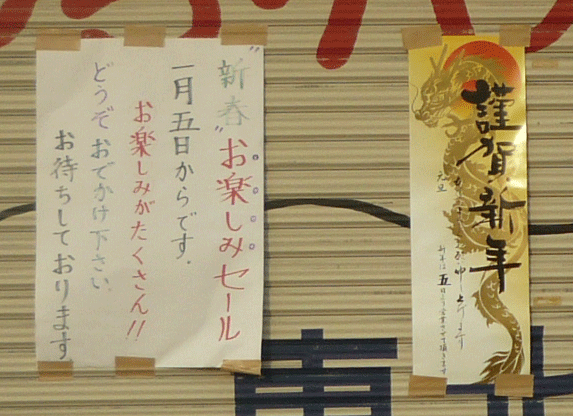 "新春"お楽しみセール
一月五日からです.
お楽しみがたくさん!!
どうぞおでかけ下さい
お待ちしております
謹賀新年
元旦